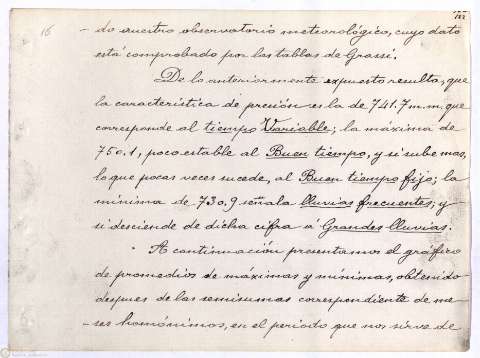 16
-do nuestro observatorio meteorológico, cuyo dato
está comprobado por las tablas de Grassi.
De lo anteriormente expuesto resulta, que
la característica de presión es la de 741.7 m.m. que
corresponde al tiempo Variable; la máxima de
750.1, poco estable al Buen tiempo, y si sube mas,
lo que pocas veces sucede, al Buen tiempo fijo; la
mínima de 730.9 señala lluvias frecuentes; y
si desciende de dicha cifra á Grandes lluvias.
A continuación presentamos el gráfico
de promedios de máximas y mínimas, obtenido
despues de las semisumas correspondiente de me-
-ses homónimos, en el periodo que nos sirve de